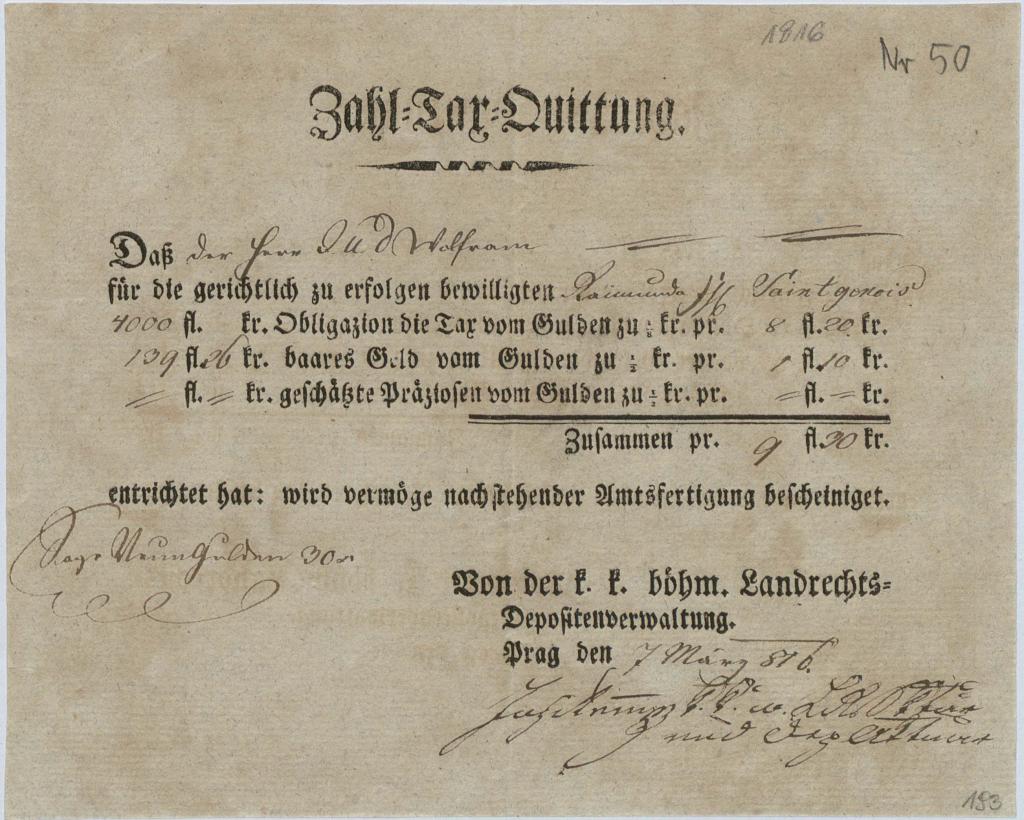 1816
Nr 50
Zahl-Tax-Quittung.
Daß der Herr JUD Wolfram
für die gerichtlich zu erfolgen bewilligten Raimunda Saintgenois
4000 fl. kr. Obligazion die Tax vom Gulden zu ⅛ kr. pr. 8 fl. 20 kr.
139 fl. 26 kr. baares Geld vom Gulden zu ½ kr. pr. 1 fl. 10 kr.
= fl. = kr. geschätzte Präziosen vom Gulden zu ½ kr. pr. = fl. = kr.
Zusammen pr. 9 fl. 30 kr.
entrichtet hat: wird vermöge nachstehender Amtsfertigung bescheiniget.
Sage Neun Gulden 30 kr
Von der k. k. böhm. Landrechts-
Depositenverwaltung.
Prag den 7 März 816.
k. k.
und Dep Aktuar
193